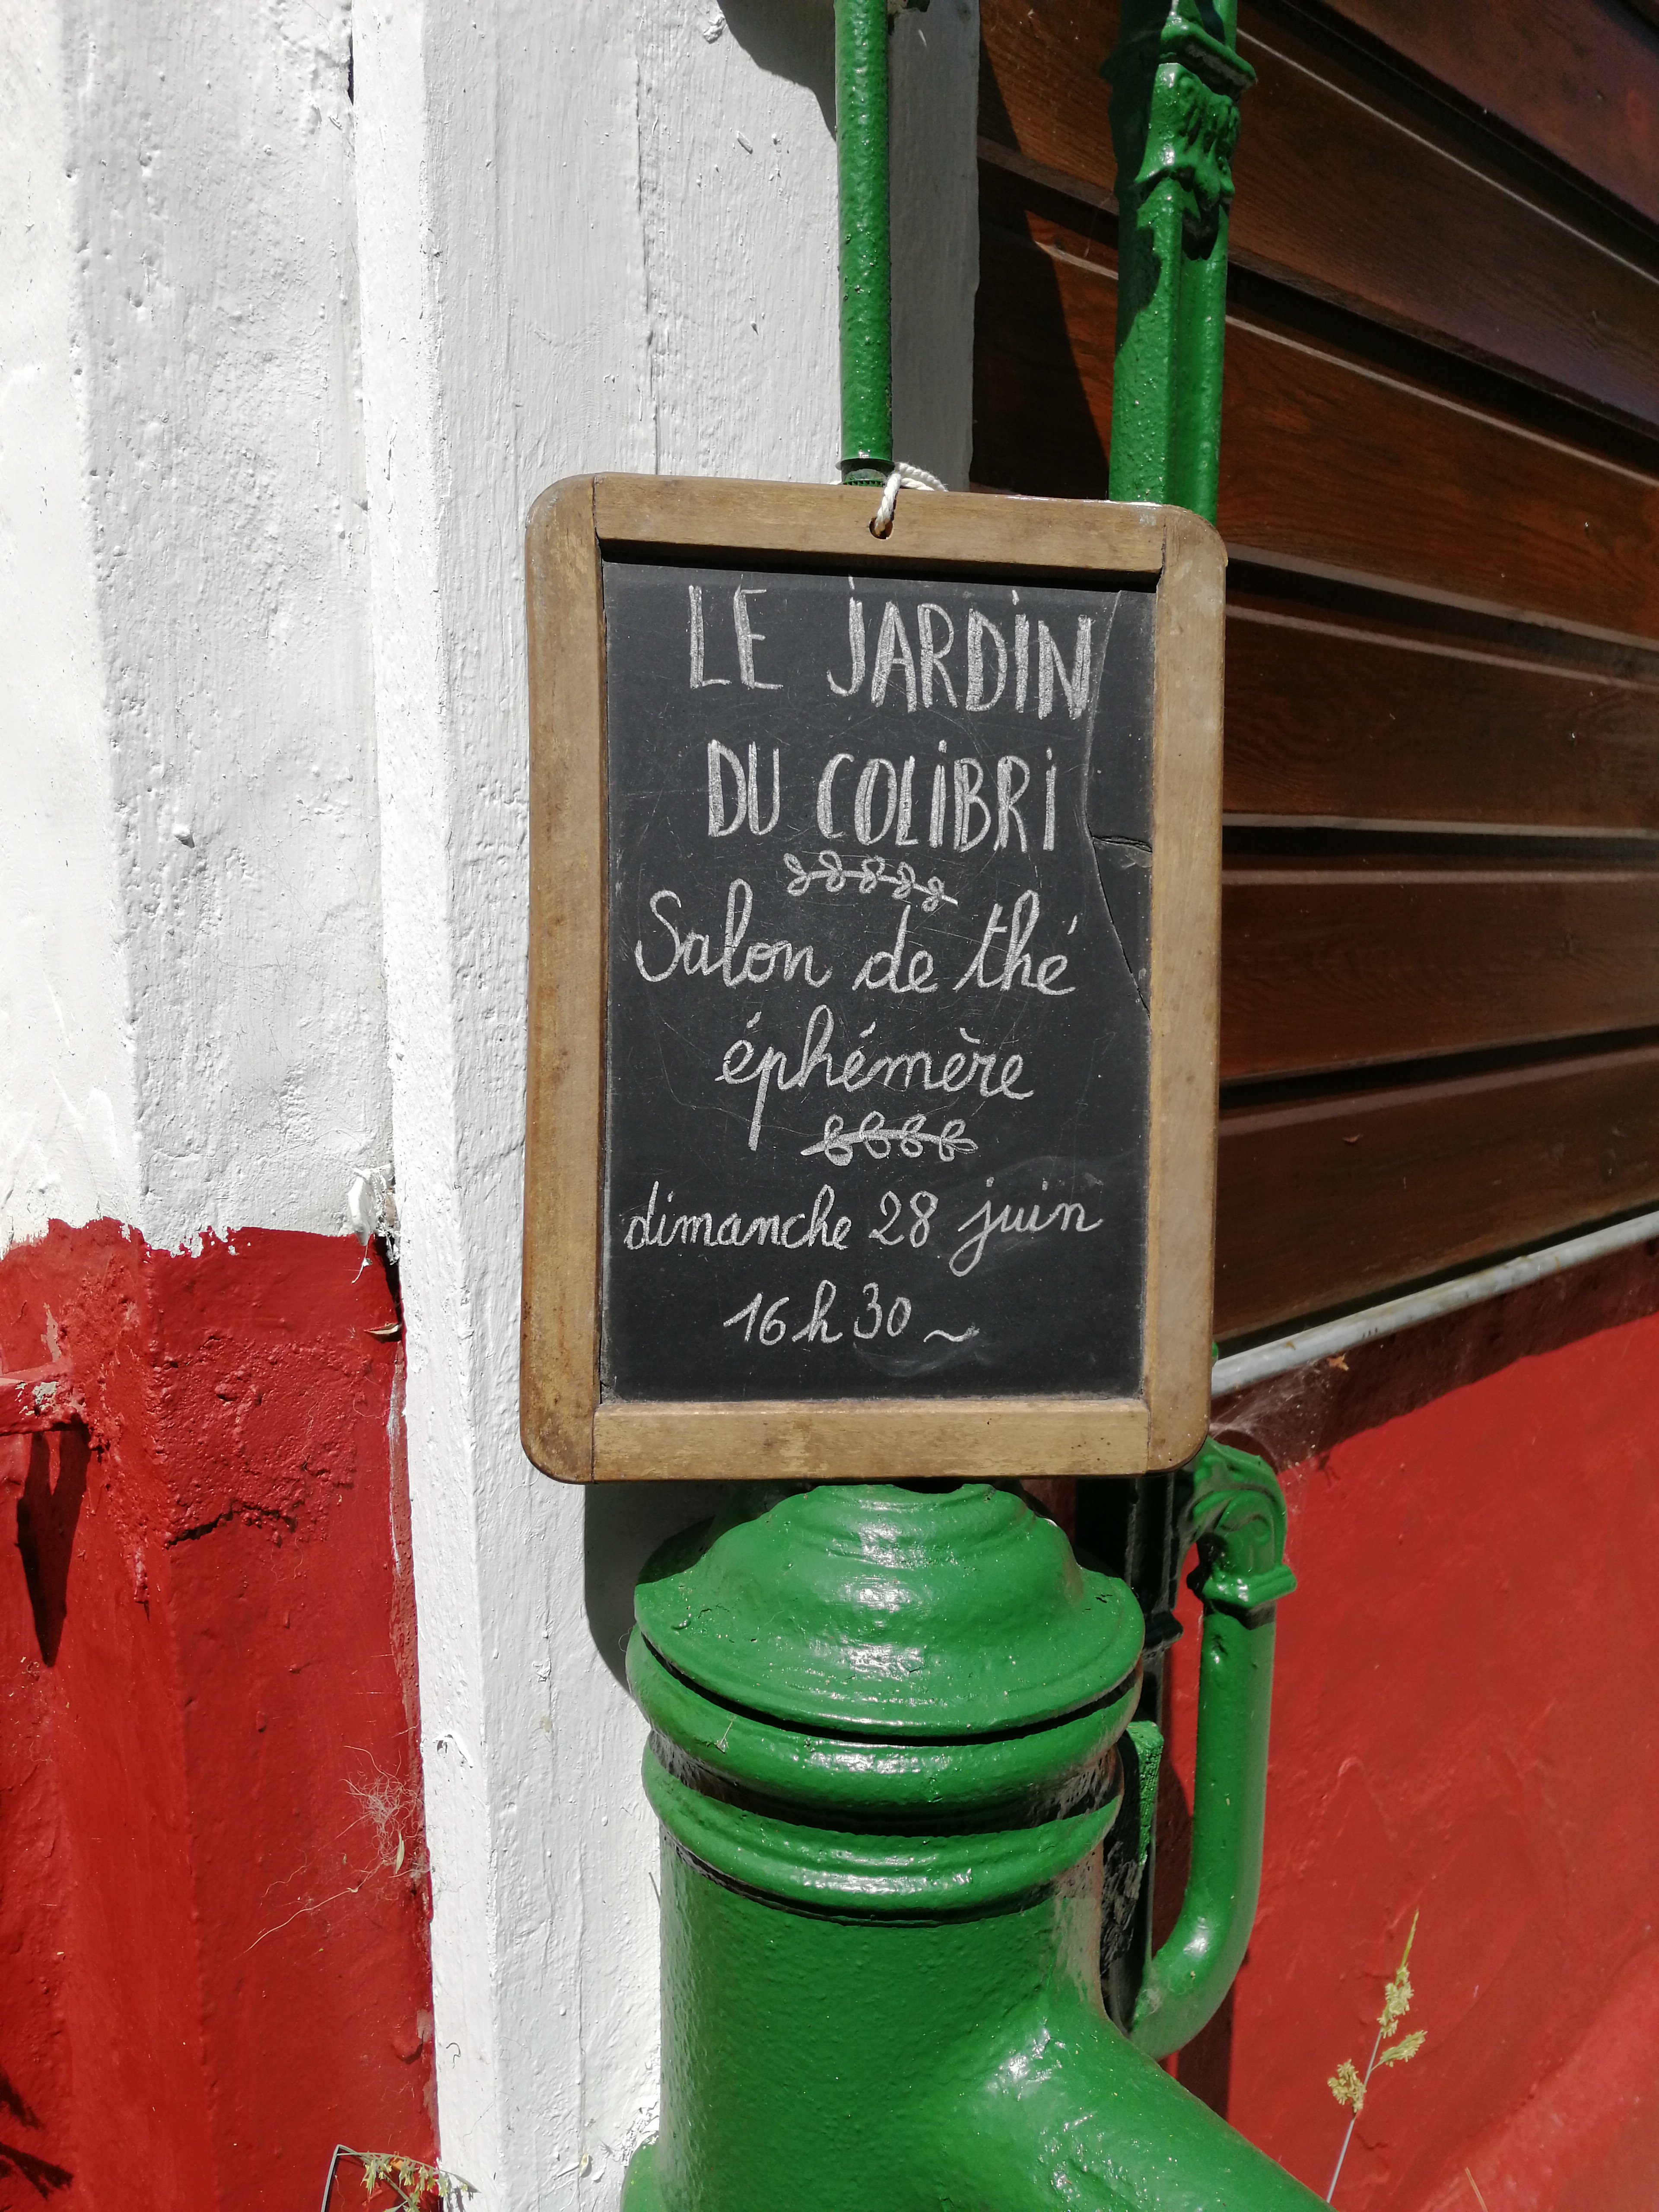 LE JARDIN
DU COLIBRI
Salon de thé
éphémère
dimanche 28 juin
16h30~